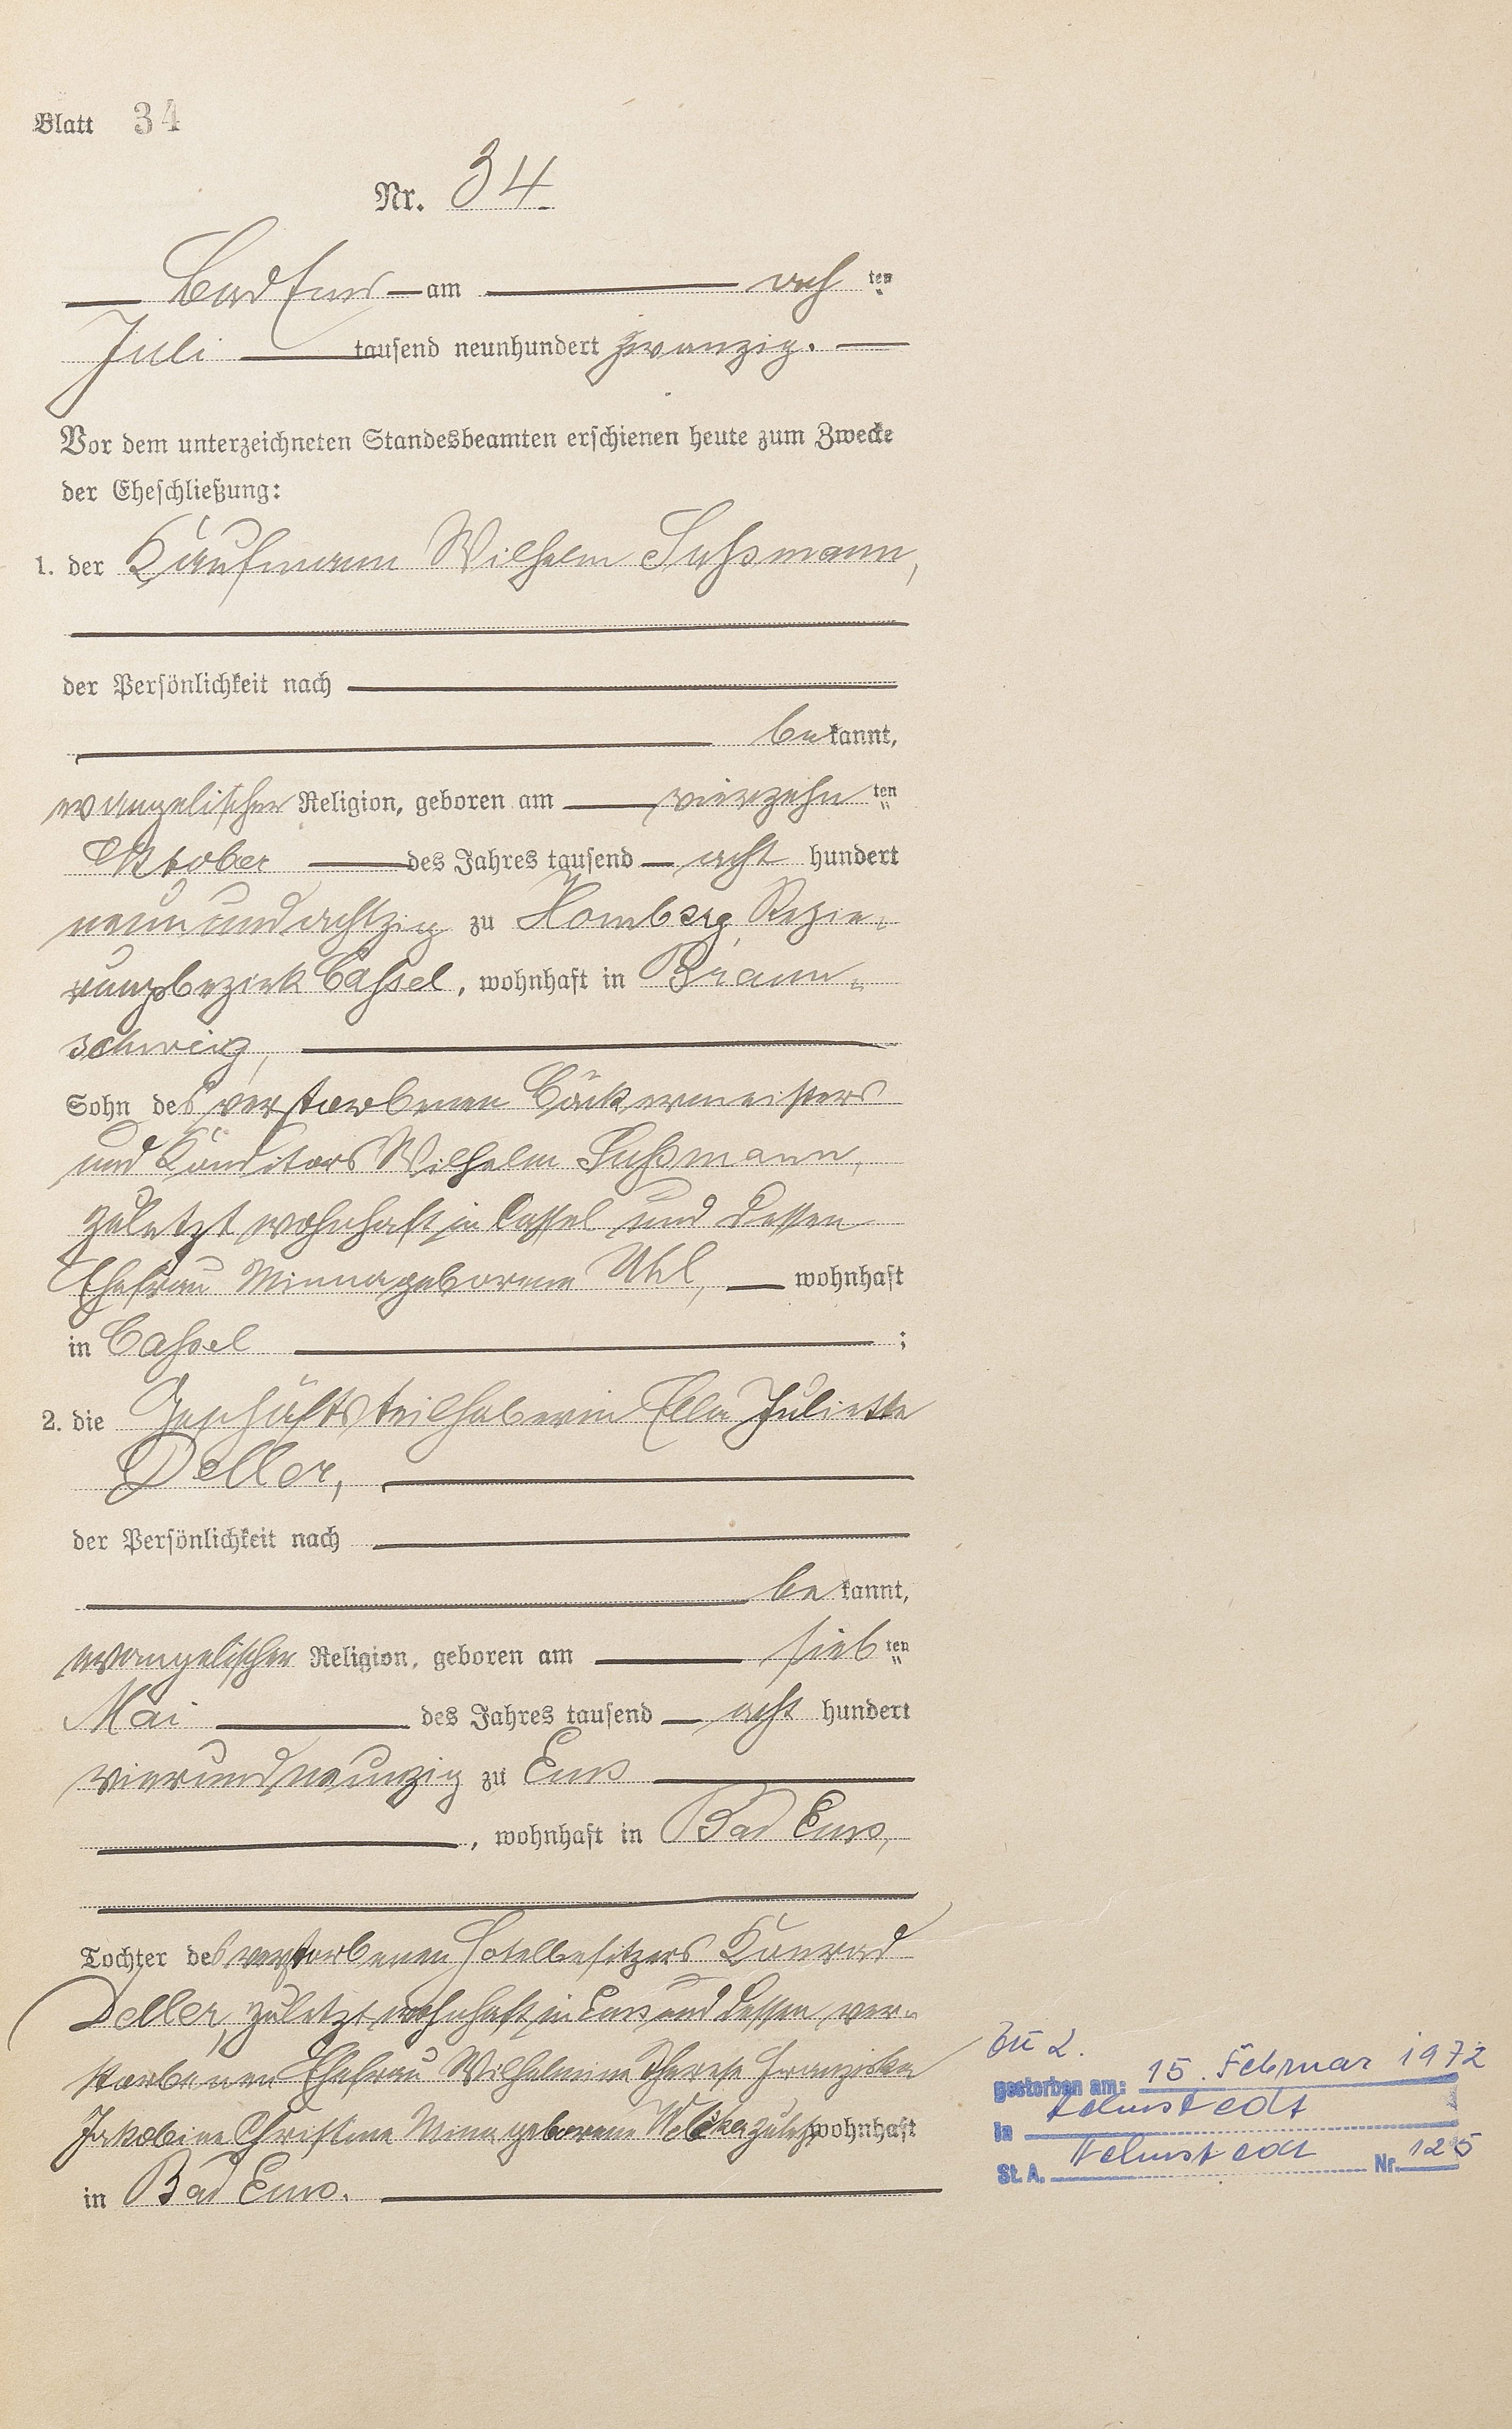 Blatt 34
Nr. 34
Bad Ems am ach ten
Juli tausend neunhundert zwanzig.
Vor dem unterzeichneten Standesbeamten erschienen heute zum Zwecke
der Eheschließung:
1. der Kaufmann Wilhelm Sußmann,
der Persönlichkeit nach
be kannt,
evangelischer Religion, geboren am vierzehn ten
Oktober des Jahres tausend acht hundert
neunundachtzig zu Homberg, Regie-
rungsbezirk Cassel, wohnhaft in Braun-
schweig,
Sohn des verstorbenen Bäckermeisters
und Konditors Wilhelm Sußmann,
zuletzt wohnhaft in Cassel und dessen
Ehefrau Minna geborene Uhl, wohnhaft
in Cassel ;
2. die Geschäftsteilhaberin Ella Juliette
Deller,
der Persönlichkeit nach
be kannt,
evangelischer Religion, geboren am sieb ten
Mai des Jahres tausend acht hundert
vierundneunzig zu Ems
, wohnhaft in Bad Ems,
Tochter des verstorbenen Hotelbesitzers Konrad
Deller, zuletzt wohnhaft in Ems und dessen ver-
storbenen Ehefrau Wilhelmine Therese Franziska
Jakobine Christine Mina geborene zuletzt wohnhaft
in Bad Ems.
Zu 2.
gestorben am: 15. Februar 1972
in Helmstedt
St. A. Helmstedt Nr. 125